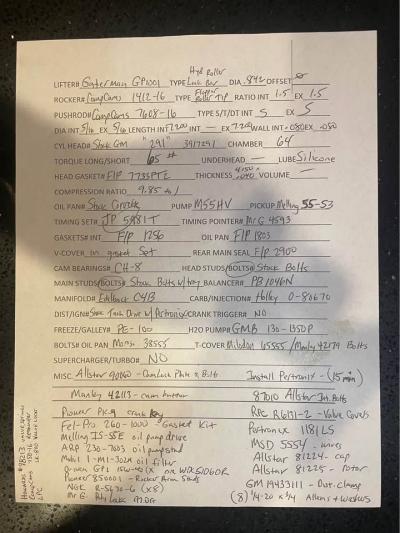 Hyd Roller
LIFTER# Gaterman GP1001 TYPE Link Bar DIA .842 OFFSET
ROCKER# CompCams 1412-16 TYPE Roller Tip RATIO INT 1.5 EX 1.5
PUSHROD# CompCams 7608-16 TYPE S/T/DT INT S EX S
DIA INT 5/16 EX 5/16 LENGTH INT 7.200 INT — EX 7.200 WALL INT .080 EX .080
CYL HEAD# Stock GM "291" 3917291 CHAMBER 64
TORQUE LONG/SHORT 65 # UNDERHEAD — LUBE Silicone
HEAD GASKET# F/P 7733PT2 THICKNESS VOLUME —
COMPRESSION RATIO 9.85 /1
OIL PAN# Stock PUMP M55HV PICKUP Melling 55-S3
TIMING SET# JP 5981T TIMING POINTER# Mr G 4593
GASKETS# INT F/P 1256 OIL PAN F/P 1803
V-COVER in gasket set REAR MAIN SEAL F/P 2900
CAM BEARINGS# CH-8 HEAD STUDS/BOLTS# Stock Bolts
MAIN STUDS/BOLTS# Stock Bolts w/tray BALANCER# PB1046N
MANIFOLD# Edelbrock C4B CARB/INJECTION# Holley 0-80670
DIST/IGN# Stock Tach Drive w/Pertronix CRANK TRIGGER# NO
FREEZE/GALLEY# PE-100 H2O PUMP# GMB 130-1350P
BOLTS# OIL PAN Moroso 38555 T-COVER Milodon 65555 / Manley 42179 Bolts
SUPERCHARGER/TURBO# NO
MISC. Allstar 90060 - Cam Lock Plate & Bolts Install Pertronix - (15 min)
Manley 42113 - cam button 87010 Allstar Int. Bolts
Pioneer crank key RPC R6131-2 - Valve Covers
Fel-Pro 260-1000 Gasket Kit Pertronix 1181LS
Melling IS-55E oil pump drive MSD 5554 - wires
ARP 230-7003 oil pump stud Allstar 81224 - cap
Mobil 1 M1-302A oil filter Allstar 81225 - rotor
or WIX 51060R
Pioneer 850001 - Rocker Arm Studs GM 19433111 - Dist. clamp
NGK R-5670-6 (x8) (8) 1/4-20 x 3/4 Allens & Washers
Mr G
Howards #98213
CompCams
LPC